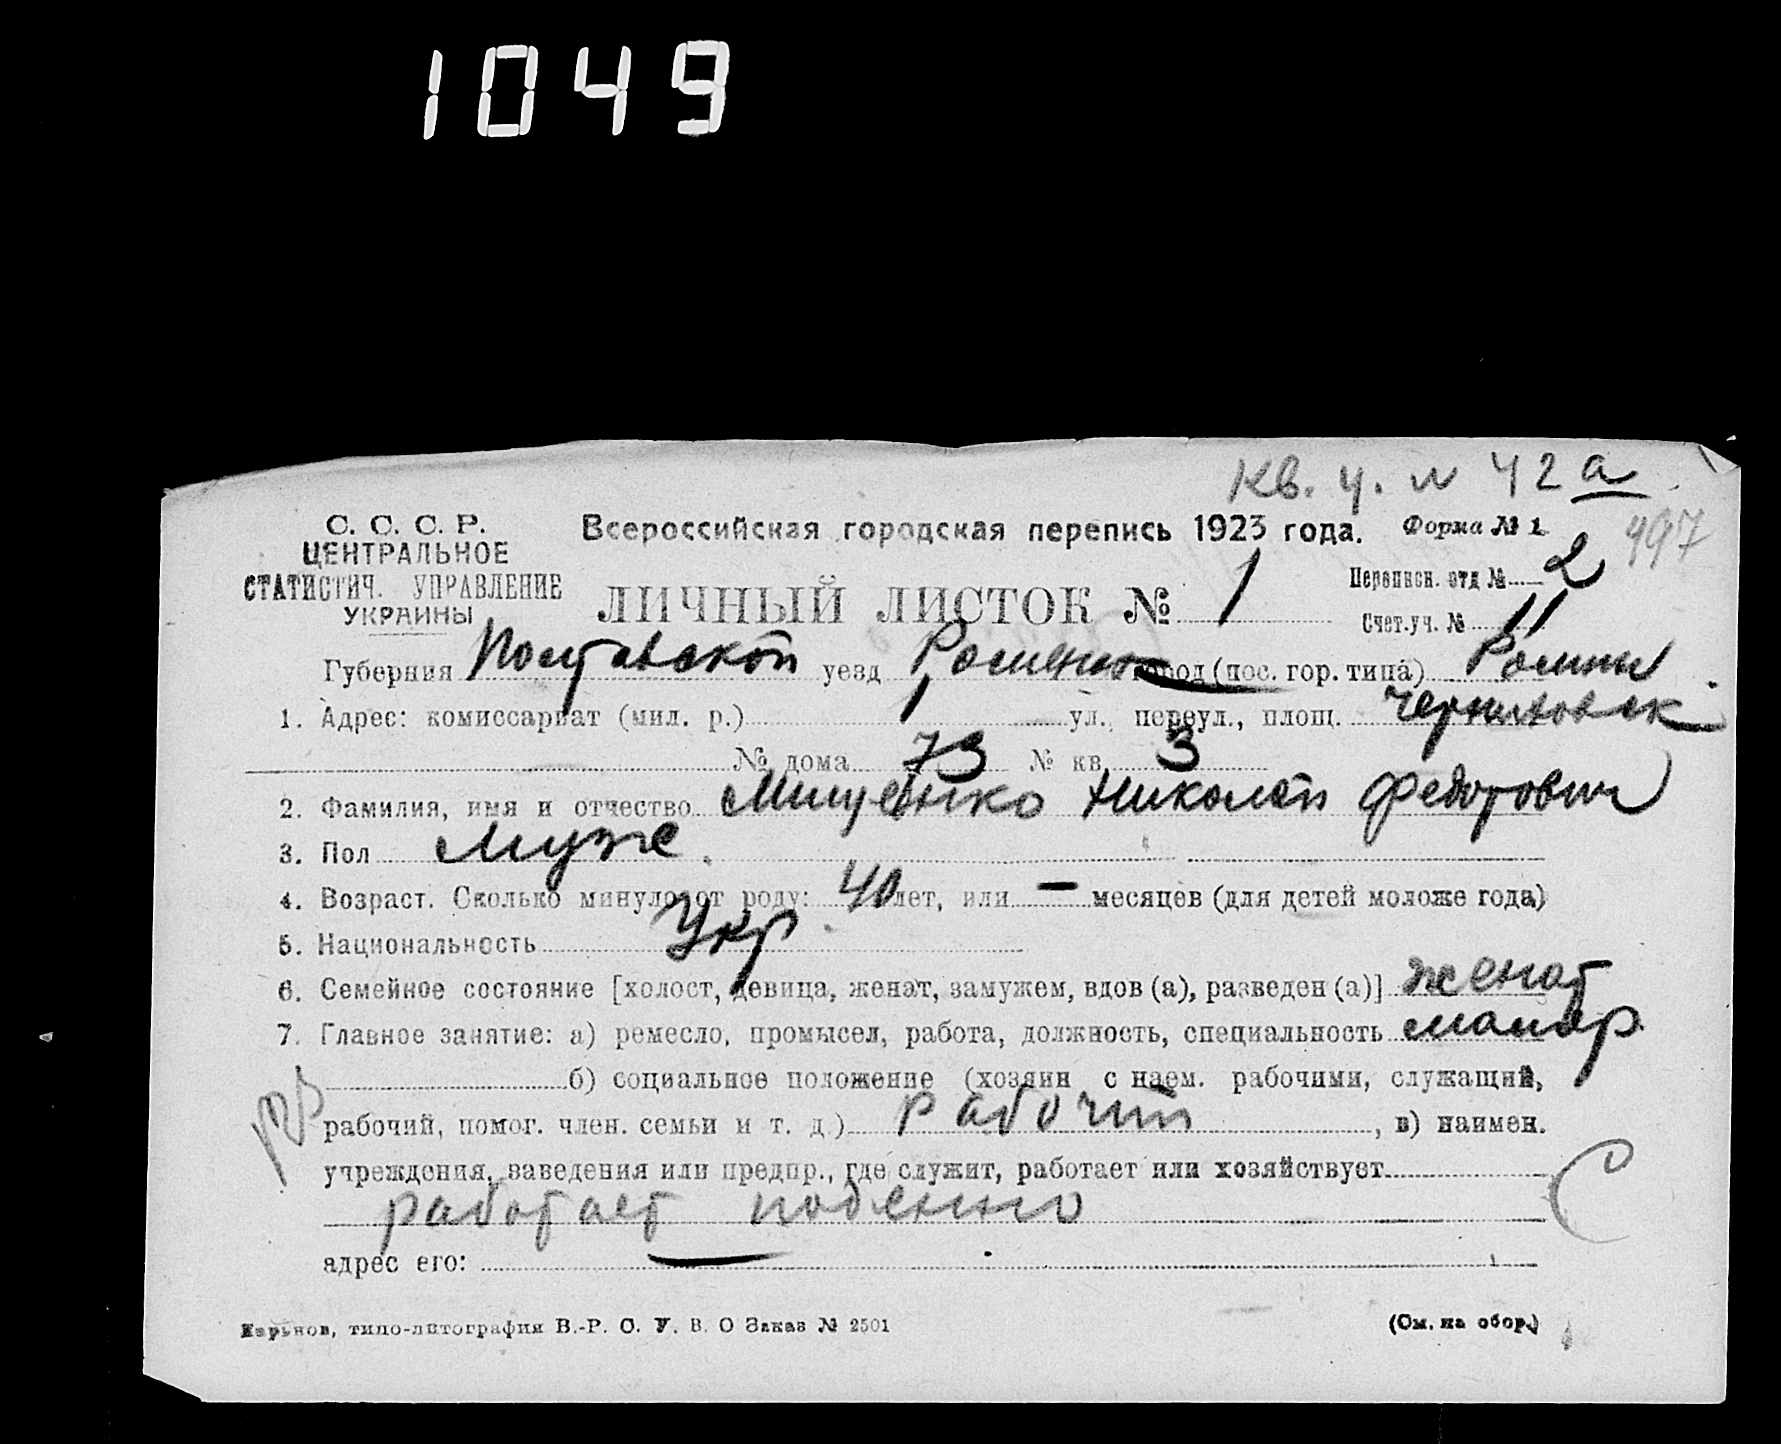 1049
Кв. ч. № 42а
С. С. С. Р. Всероссийская городская перепись 1923 года. Форма № 1 497
ЦЕНТРАЛЬНОЕ
СТАТИСТИЧ. УПРАВЛЕНИЕ ЛИЧНЫЙ ЛИСТОК № 1 Переписн. отд № 2
УКРАИНЫ Счет. уч. № 11
Губерния Полтавской уезд город (пос. гор. типа) Ромны
1. Адрес: комиссариат (мил. р.) 1 ул., переул., площ.
№ дома 73 № кв. 3
2. Фамилия, имя и отчество Мищенко Николай Федорович
3. Пол Муж.
4. Возраст. Сколько минуло от роду: 40 лет, или — месяцев (для детей моложе года)
5. Национальность Укр.
6. Семейное состояние [холост, девица, женат, замужем, вдов (а), разведен (а)] женат
7. Главное занятие: а) ремесло, промысел, работа, должность, специальность маляр
б) социальное положение (хозяин с наем. рабочими, служащий,
рабочий, помог. член. семьи и т. д.) рабочий, в) наимен.
учреждения, заведения или предпр., где служит, работает или хозяйствует
работает поденно
адрес его: —
Харьков, типо-литография В.-Р. С. У. В. О Заказ № 2501 (См. на обор.)